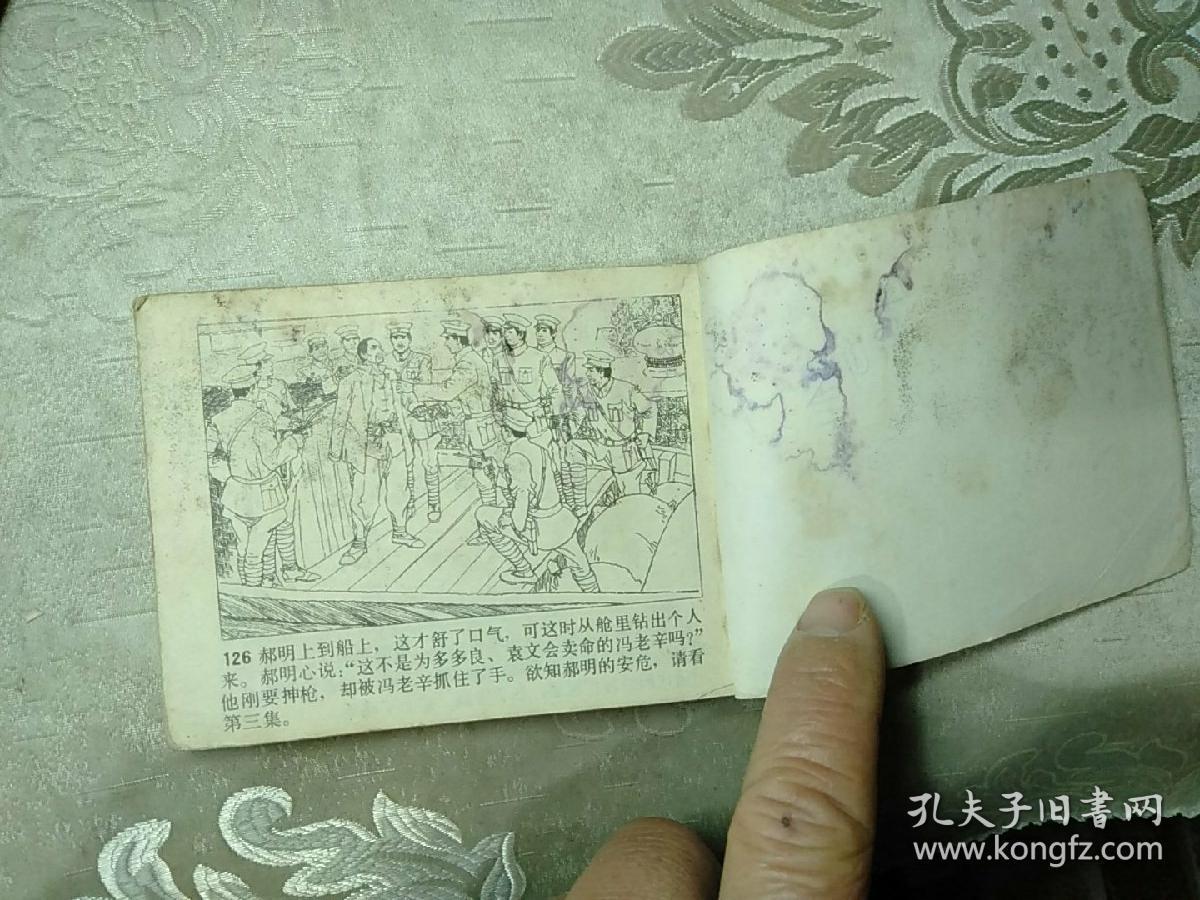 126 郝明上到船上，这才舒了口气，可这时从舱里钻出个人
来。郝明心说：“这不是为多多良、袁文会卖命的冯老辛吗？”
他刚要抻枪，却被冯老辛抓住了手。欲知郝明的安危，请看
第三集。
孔夫子旧書网
www.kongfz.com